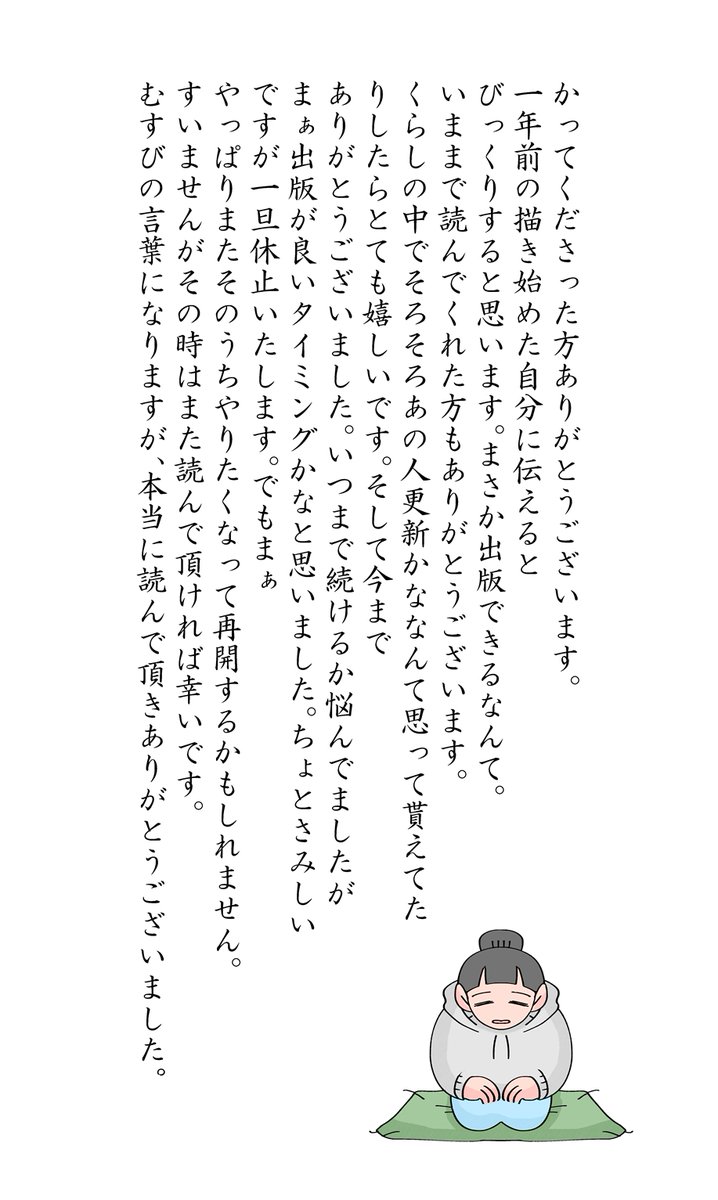 かってくださった方ありがとうございます。
一年前の描き始めた自分に伝えると
びっくりすると思います。まさか出版できるなんて。
いままで読んでくれた方もありがとうございます。
くらしの中でそろそろあの人更新かななんて思って貰えてた
りしたらとても嬉しいです。そして今まで
ありがとうございました。いつまで続けるか悩んでましたが
まぁ出版が良いタイミングかなと思いました。ちょとさみしい
ですが一旦休止いたします。でもまぁ
やっぱりまたそのうちやりたくなって再開するかもしれません。
すいませんがその時はまた読んで頂ければ幸いです。
むすびの言葉になりますが、本当に読んで頂きありがとうございました。